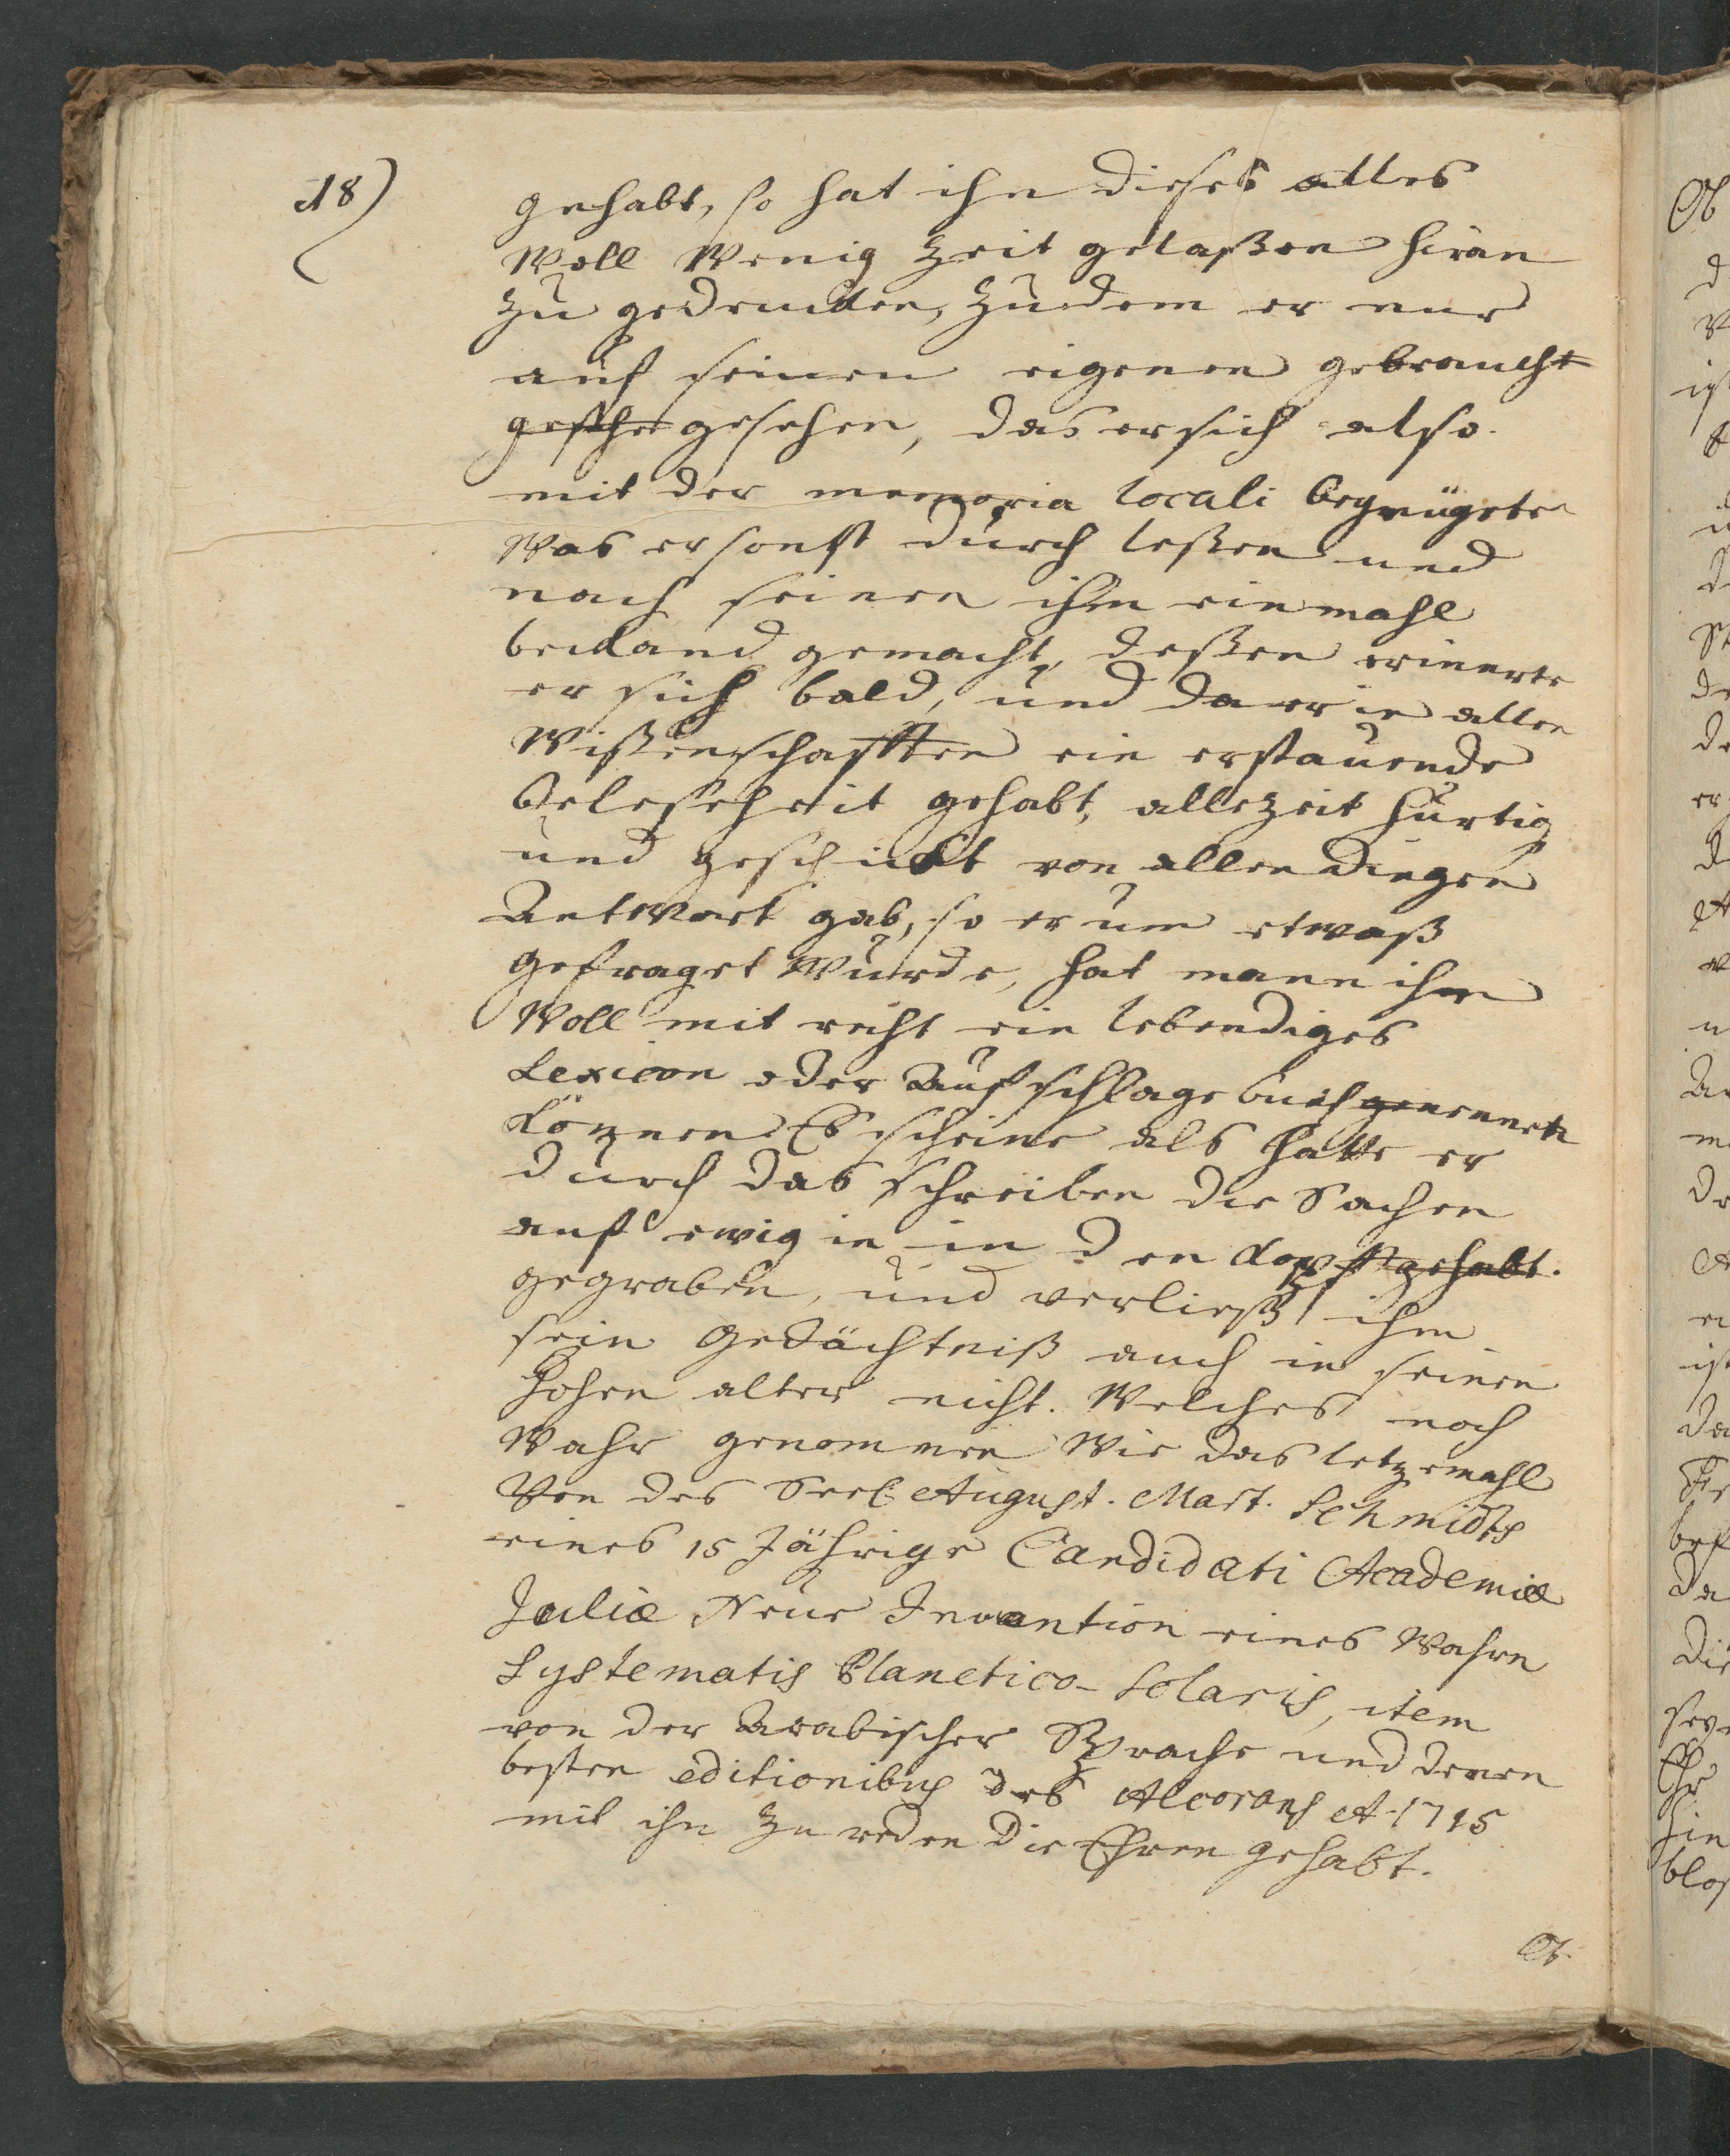 18)
gehabt, so hat ihn dieses alles
Woll Wenig Zeit gelaßen hiran
Zu gedencken, Zudem er nur
auf seinen eigenen gebraucht
gesehe gesehen, das er sich also
mit der memoria locali begnügete
Was er sonst durch leßen und
nach seinen ihm einmahl
bekand gemacht, deßen erinerte
er sich bald, und da er in allen
Wißenschafften ein erstauende
Beleseheit gehabt, allezeit hurtig
und geschickt von allen dingen
Antwort gab, so er um etwaß
gefraget Wurde, hat mann ihm
Woll mit recht ein lebendiges
Lexicon oder Aufschlage buch genennet
können Es scheine als hatte er
durch das schreiben die Sachen
auf ewig in in den Kopff gehabt.
gegraben, und verließ ihm
sein Gedächtniß auch in seinen
hohen alter nicht. Welches noch
Wahr genommen Wie das letzemahl
Von des Seel. August. Mart. Schmidts
eines 15 Jährige Candidati Academiæ
Juliæ Neue Invention eines Wahren
Systematis Planetico-Solaris, item
von der Arabischer Sprache und denen
besten editionibus des Alcorans A. 1715
mit ihn Zu reden die Ehren gehabt.
Ob